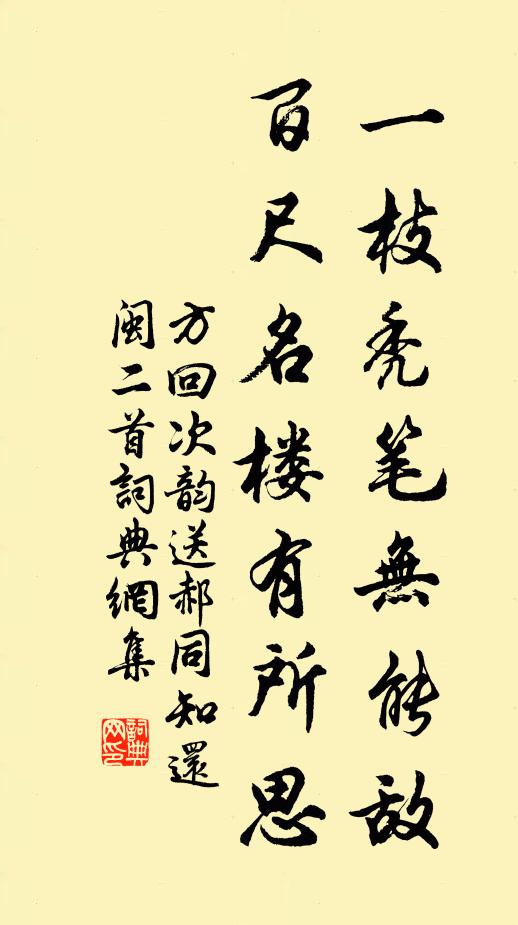 一枝秃笔無能敌
百尺名楼有所思
方回次韵送郝同知還
闽二首詞典網集
詞典网印